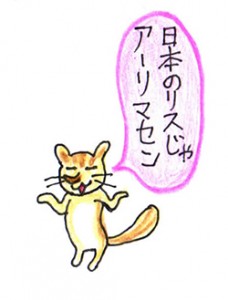 日本のリスじゃ
アーリマセン